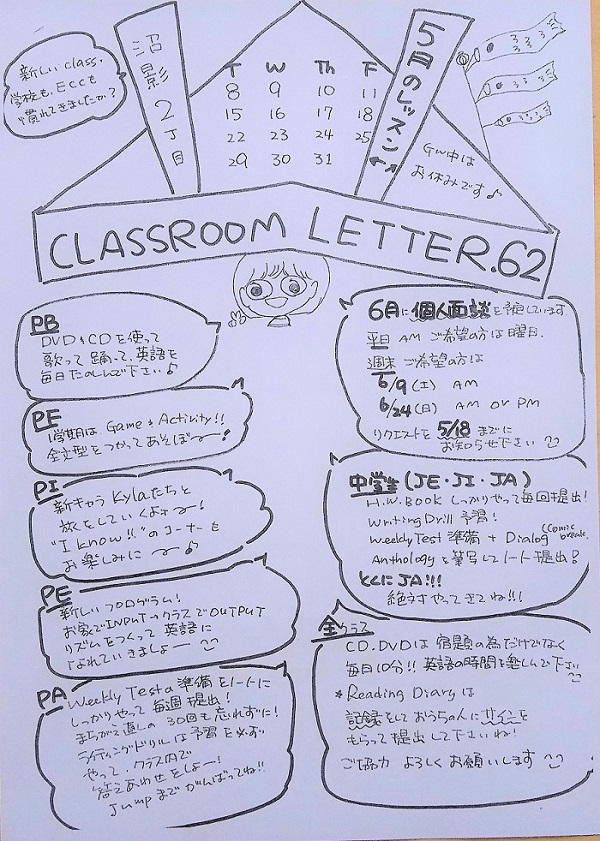 新しいclass.
学校も、ECCも
慣れてきましたか?
沼影2丁目
T W Th F
8 9 10 11
15 16 17 18
22 23 24 25
29 30 31
5月のレッスン
GW中は
お休みです♪
CLASSROOM LETTER.62
PB
DVD & CDを使って
歌って踊って、英語を
毎日たのしんで下さい♪
PF
1学期は、Game & Activity!!
全文型をつかってあそぼ〜!
PI
新キャラ Kylaたちと
旅をしていくよォ〜!
"I know!!"のコーナーも
お楽しみに〜♪
PE
新しいプログラム!
お家でINPUT→クラスでOUTPUT
リズムをつくって英語に
ふれていきましょー
PA
Weekly Testの準備をノートに
しっかりやって毎週提出!
まちがえ直しの30回も忘れずに!
ライティングドリルは予習を必ず
やって、クラス内で
答えあわせをしよー!
Jumpまでがんばってね!!
6月に個人面談を予定しています
平日 AM ご希望の方は曜日、
週末 ご希望の方は
6/9(土) AM
6/24(日) AM or PM
リクエストを 5/18 までに
お知らせ下さい
中学生(JE・JI・JA)
H.W. BOOK しっかりやって毎回提出!
Writing Drill 予習!
Weekly Test 準備 + Dialog (Comic break.
Anthologyを筆写してノート提出!
とくに JA!!!
絶対やってきてね!!!
全クラス
CD.DVDは宿題の為だけでなく
毎日10分!!英語の時間を楽しんで下さい
*Reading Diaryは
記録をしておうちの人にサインを
もらって提出して下さいね!
ご協力 よろしくお願いします